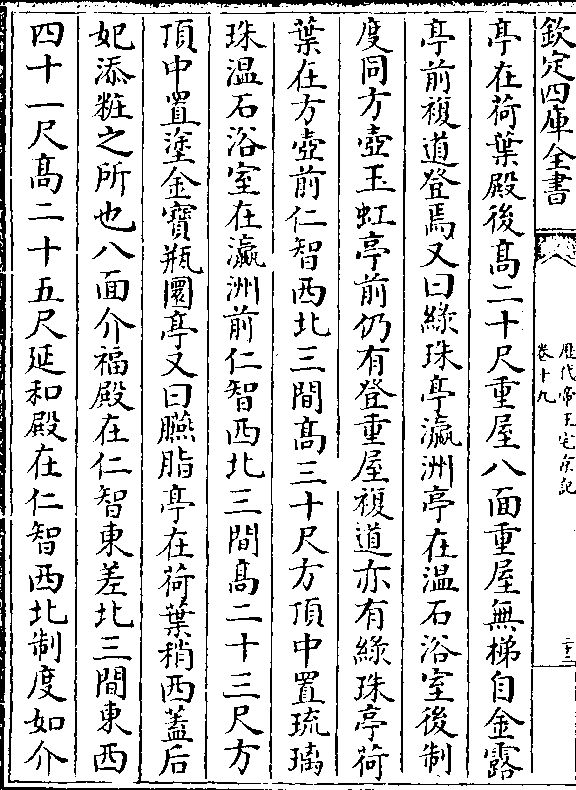 欽定四庫全書
歷代帝王宅京記
卷十九
二十二
亭在荷葉殿後髙二十尺重屋八面重屋無梯自金露
亭前複道登焉又曰綠珠亭瀛洲亭在温石浴室後制
度同方壺玉虹亭前仍有登重屋複道亦有綠珠亭荷
葉在方壺前仁智西北三間髙三十尺方頂中置琉璃
珠温石浴室在瀛洲前仁智西北三間髙二十三尺方
頂中置塗金寳瓶圜亭又曰臙脂亭在荷葉稍西蓋后
妃添粧之所也八面介福殿在仁智東差北三間東西
四十一尺髙二十五尺延和殿在仁智西北制度如介